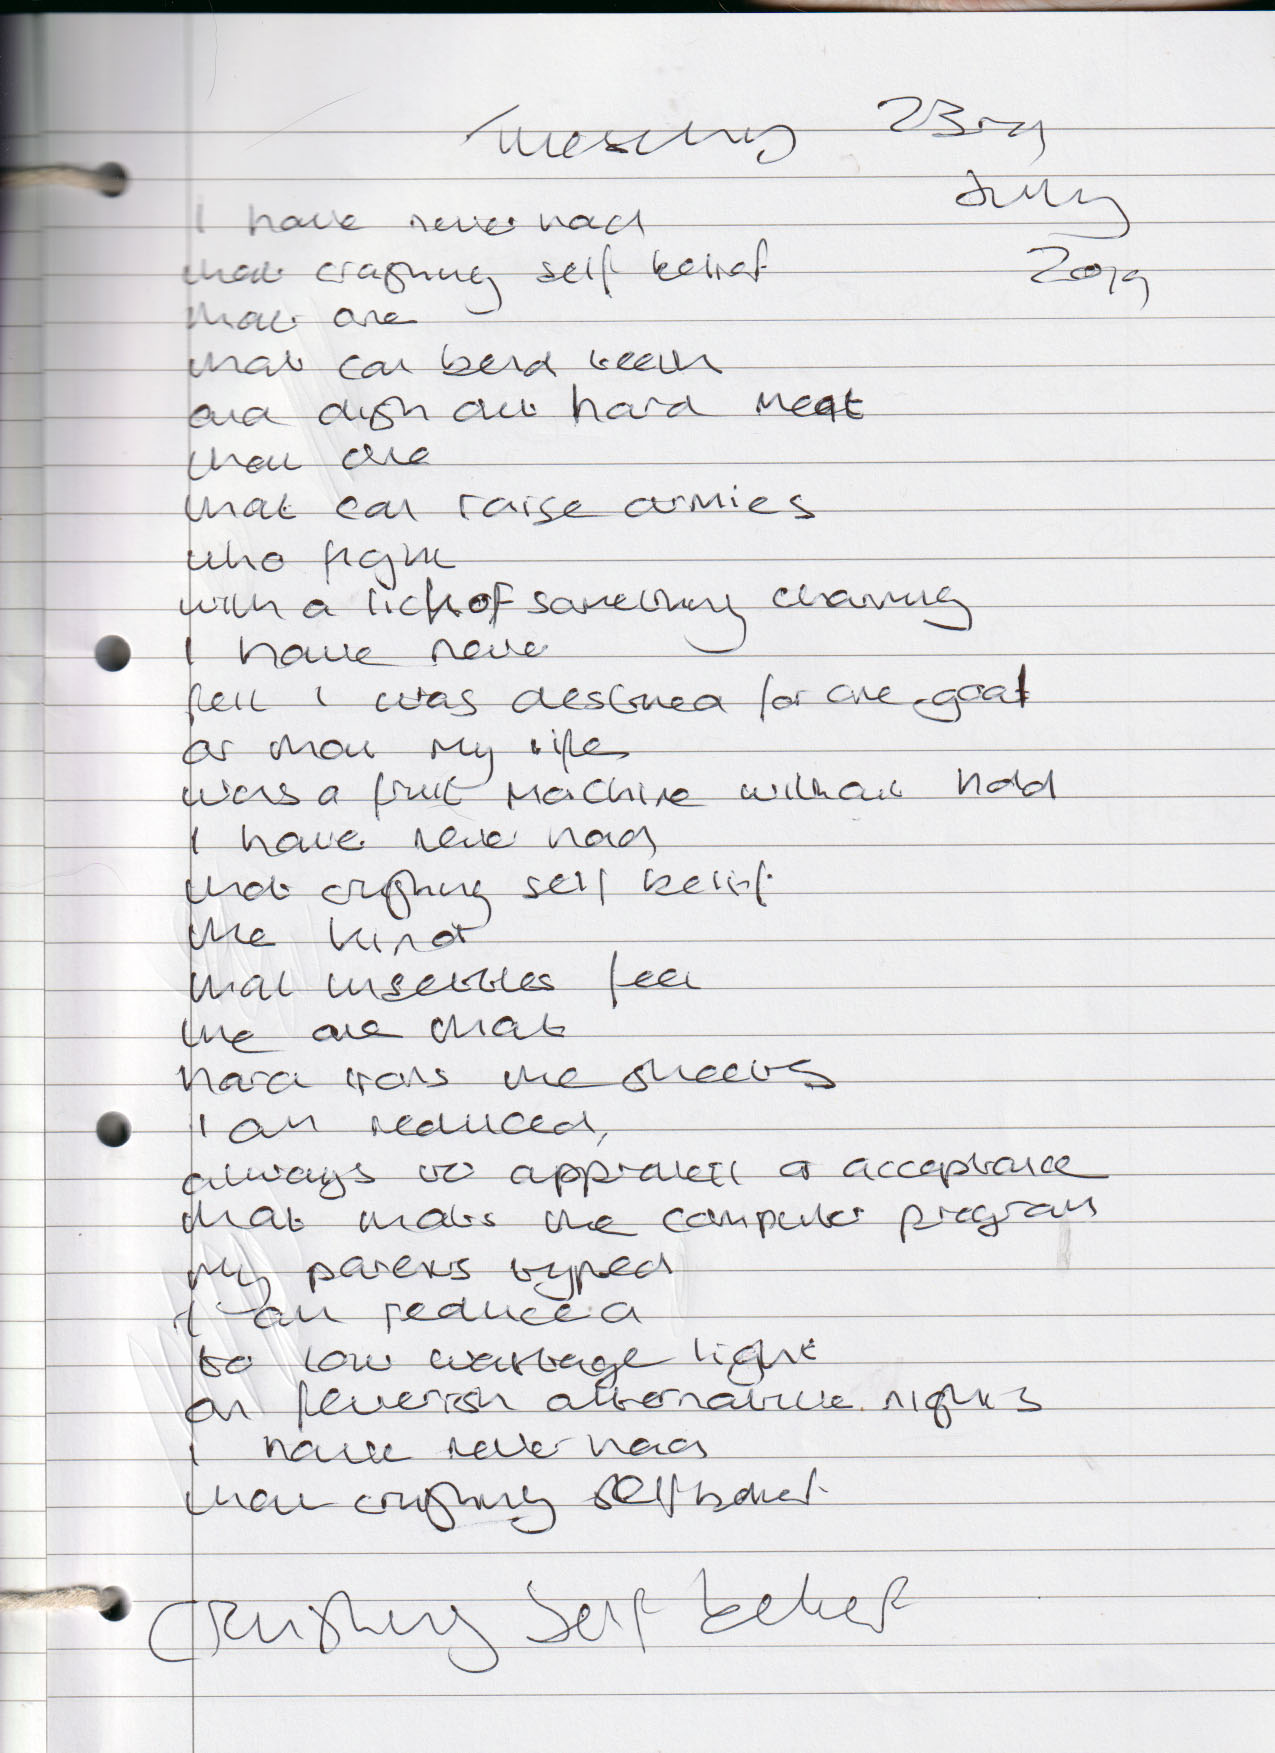 Tuesday 23rd
July
2019
I have never had
that crushing self belief
that one
that can bend teeth
and dish out hard meat
that one
that can raise armies
who fight
with a lick of something charming
I have never
felt I was designed for one goal
or that my life
was a fruit machine without hold
I have never had
that crushing self belief
the kind
that insects feel
the one that
hard irons the sheets
I am reduced,
always to approval or acceptance
that the computer program
my parents typed
I am reduced
to low wattage light
on feverish alternative nights
I have never had
that crushing self belief
Crushing Self belief